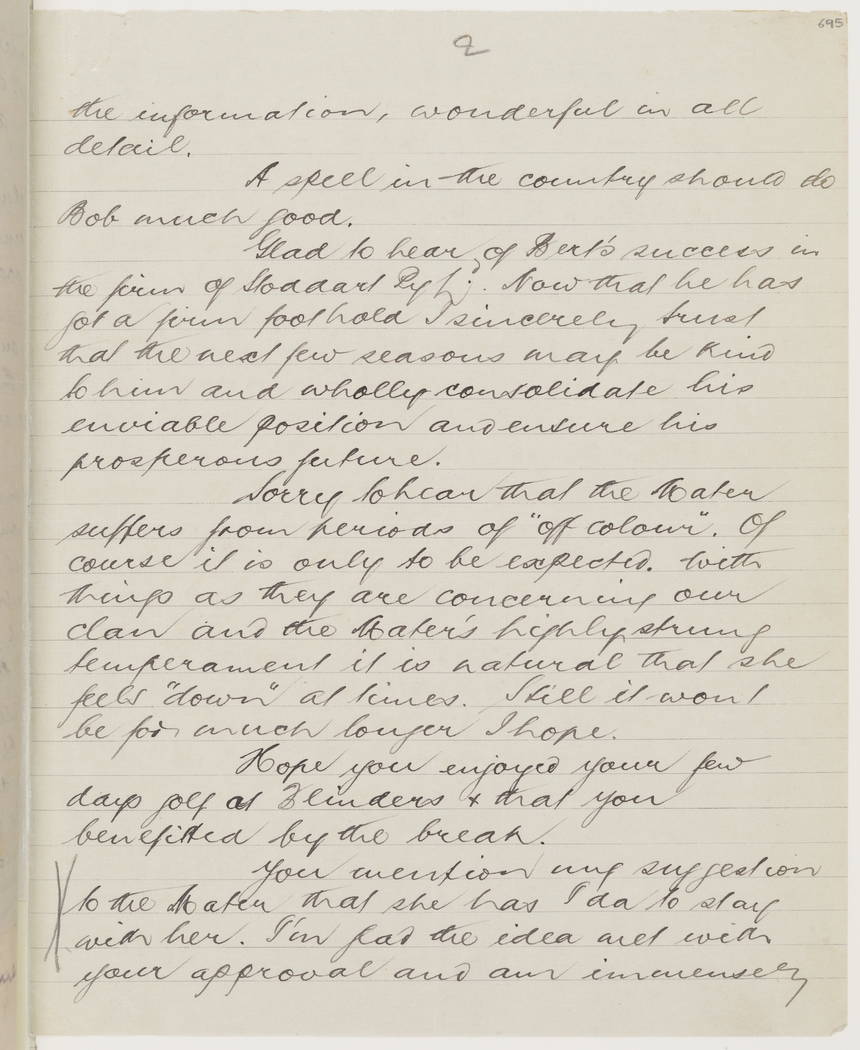 695
2
the information, wonderful in all
detail.
A spell in the country should do
Bob much good.
Glad to hear of Bert's success in
the firm of Stoddart Pty Ltd. Now that he has
got a firm foothold I sincerely trust
that the next few seasons may be kind
to him and wholly consolidate his
enviable position and ensure his
prosperous future.
Sorry to hear that the Mater
suffers from periods of "off colour". Of
course it is only to be expected. With
things as they are concerning our
clan and the Mater's highly strung
temperament it is natural that she
feels "down" at times. Still it won't
be for much longer I hope.
Hope you enjoyed your few
days golf at Flinders & that you
benefitted by the break.
You mention my suggestion
to the Mater that she has Ida to stay
with her. I'm glad the idea met with
your approval and am immensely